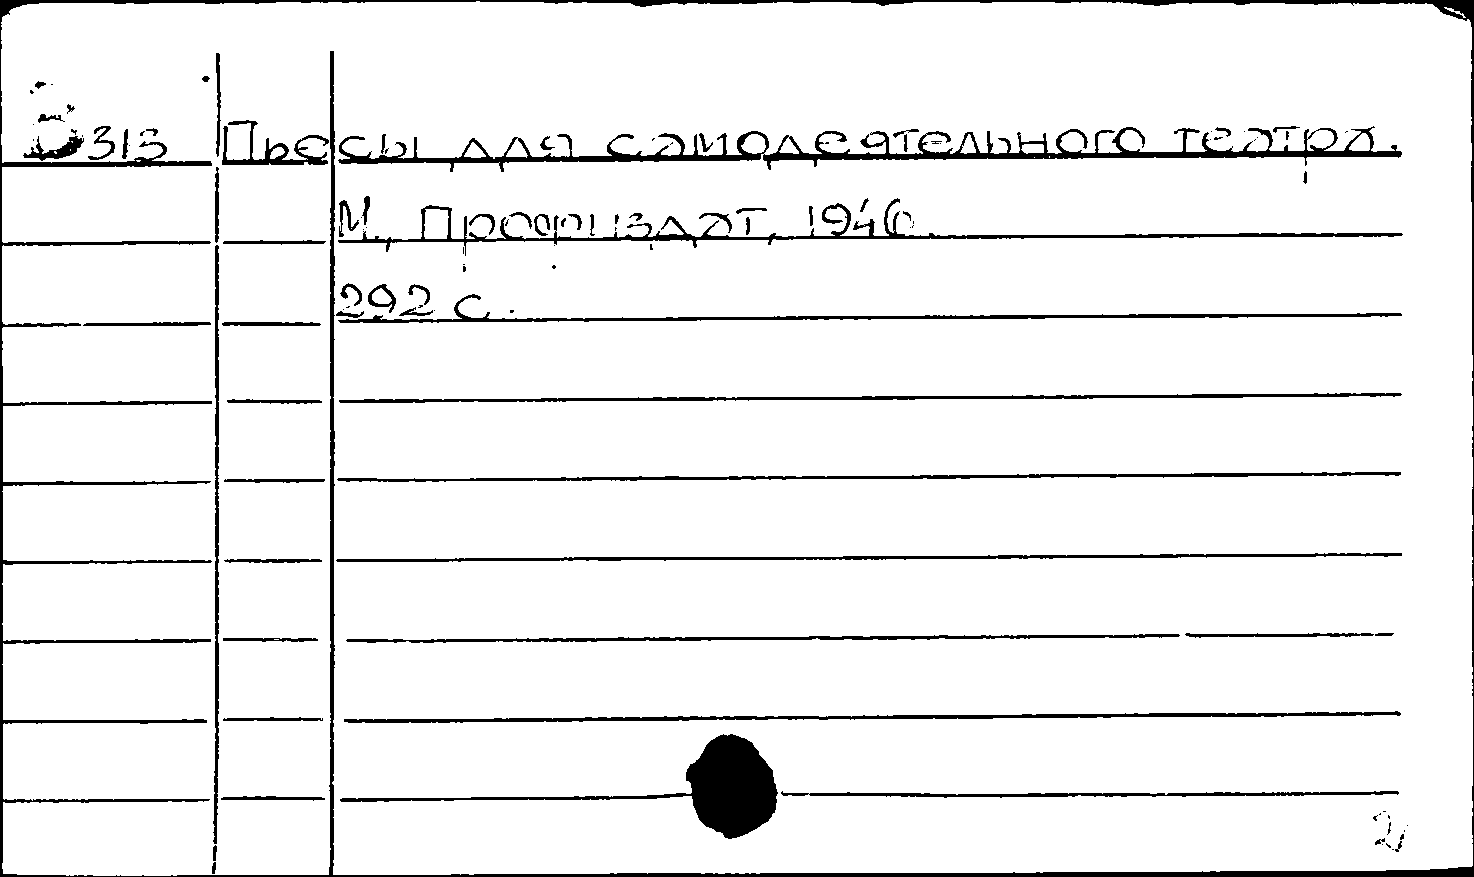 В313 Пьесы для самодеятельного театра.
М., Профиздат, 1946.
292 с.
2